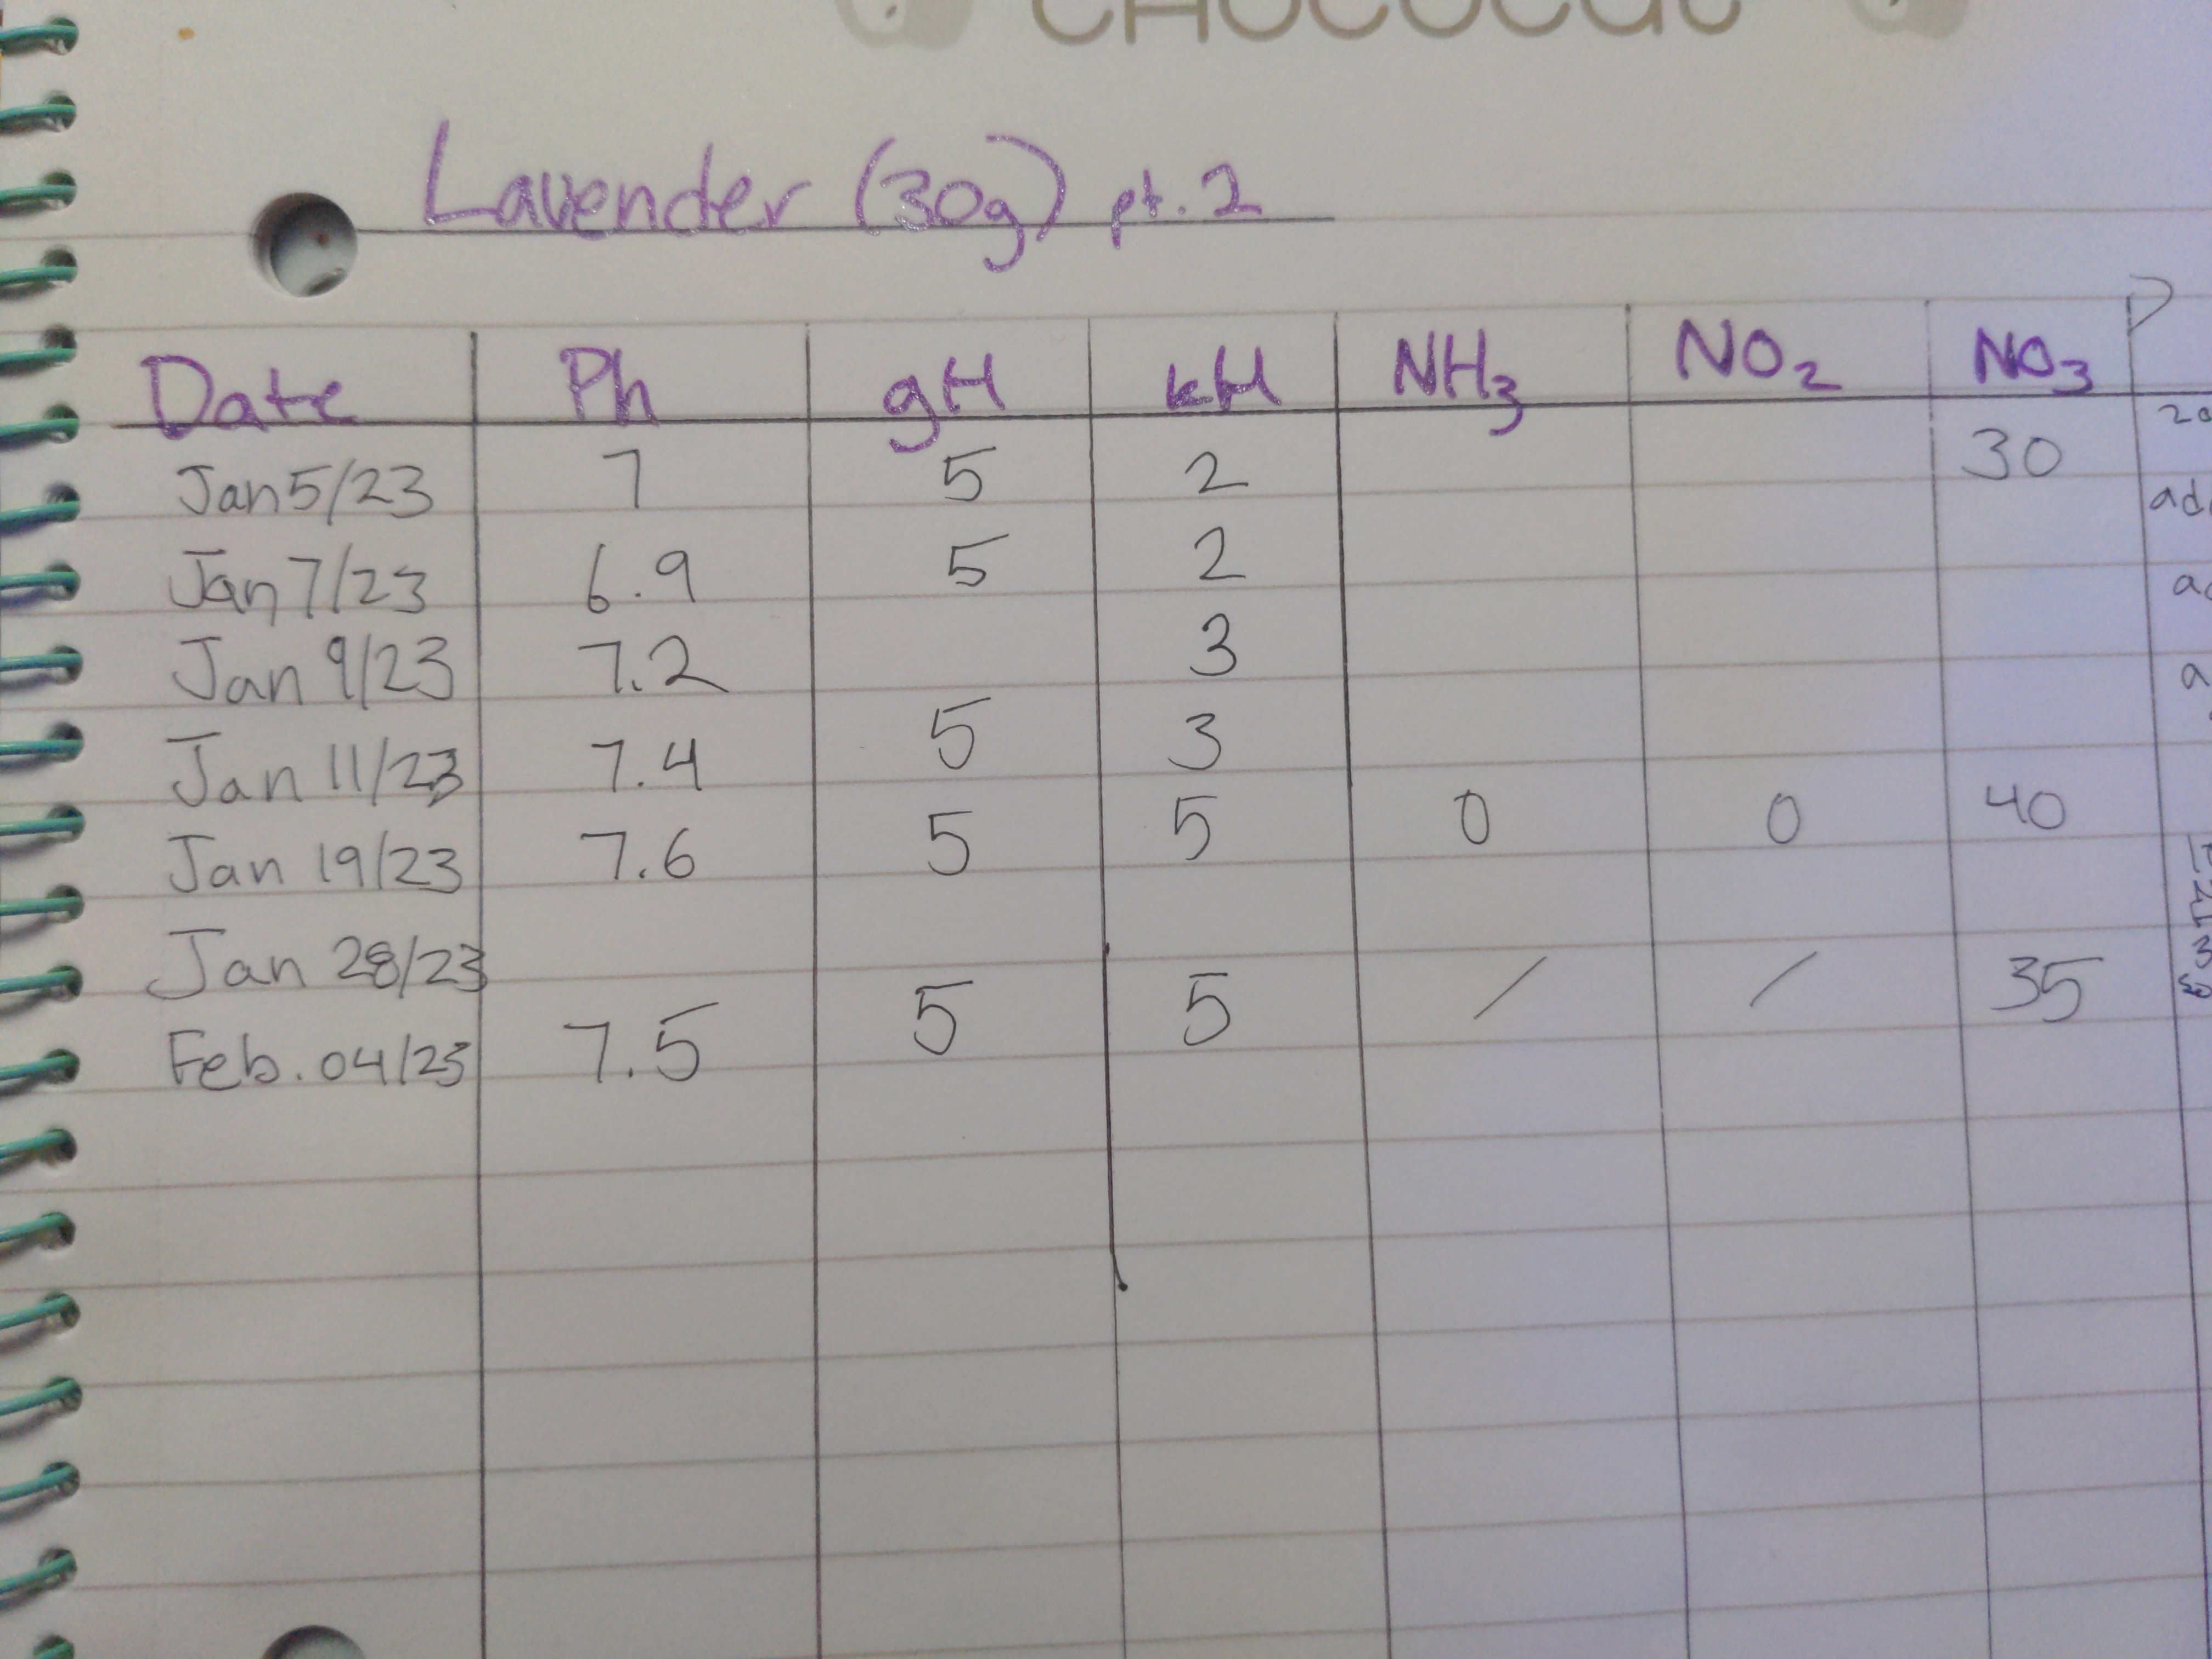 CHOCOCAT
Lavender (30g) pt. 2
Date Ph gH kH NH₃ NO₂ NO₃ P
Jan 5/23 7 5 2 30
Jan 7/23 6.9 5 2
Jan 9/23 7.2 3
Jan 11/23 7.4 5 3
Jan 19/23 7.6 5 5 0 0 40
Jan 28/23
Feb. 04/23 7.5 5 5 / / 35